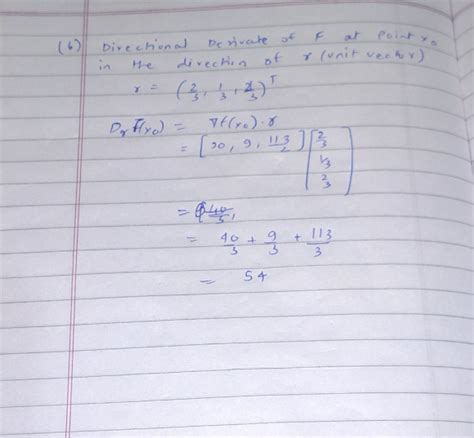 (b) Directional Derivate of F at point x₀
in the direction of r (unit vector)
r = (2/3, 1/3, 2/3)ᵀ
Dᵣ F(x₀) = ∇f(x₀) · r
= [20, 9, 113/2] [2/3 1/3 2/3]
= 40/3 + 9/3 + 113/3
= 54